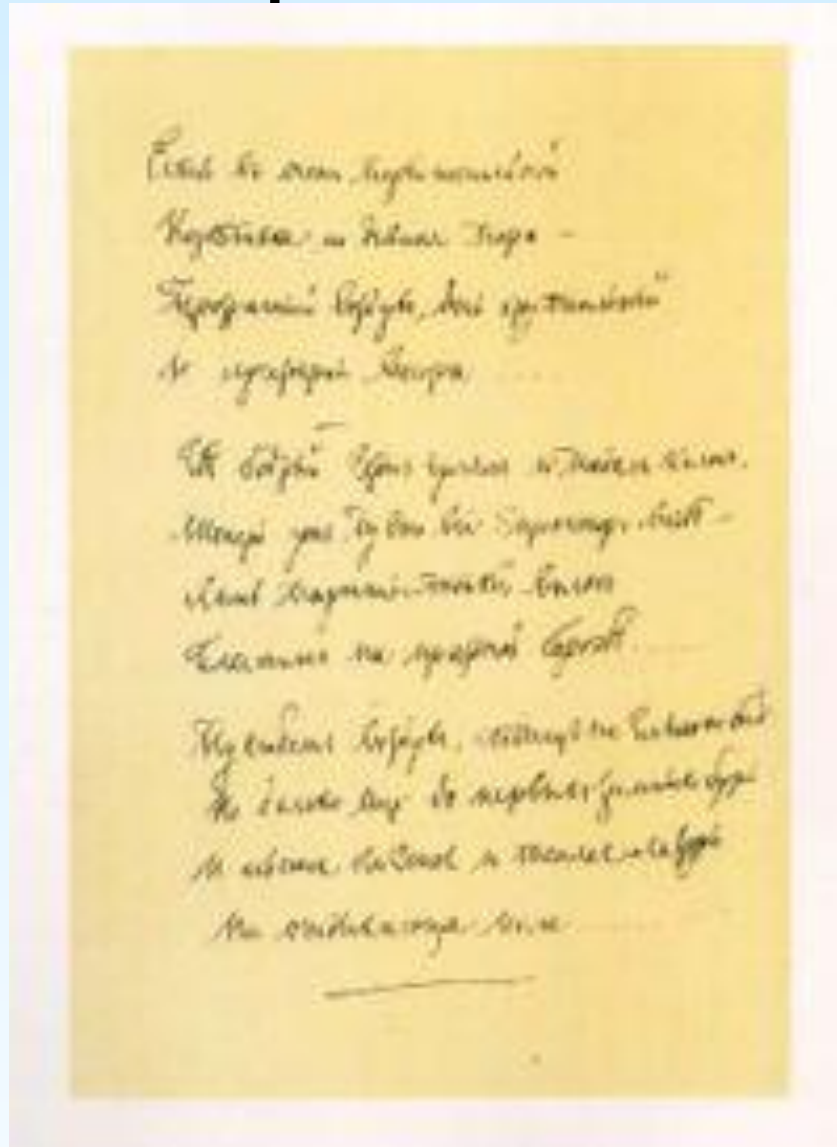 Есть въ осени первоначальной
Короткая но дивная пора –
Прозрачный воздухъ, день хрустальный
И лучезарны вечера ....
Гдѣ бодрый серпъ гулялъ и падалъ колосъ,
пусто все просторъ вездѣ –
Лишь паутины тонкій волосъ
Блеститъ на праздной бороздѣ .....
Пустѣетъ воздухъ, птицъ не слышно болѣ
Но далеко еще до первыхъ зимнихъ бурь
И льется и теплая лазурь
На отдыхающее поле .....